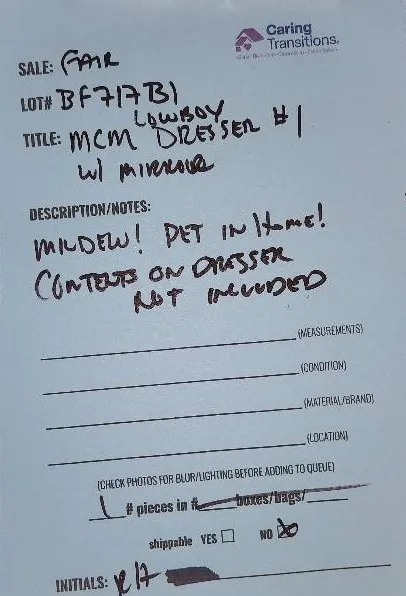 Caring
Transitions.
SALE: FAIR
LOT# BF717B1
LOWBOY
TITLE: MCM DRESSER #1
W/ MIRROR
DESCRIPTION/NOTES:
MILDEW! PET IN HOME!
CONTENTS ON DRESSER
NOT INCLUDED
(MEASUREMENTS)
(CONDITION)
(MATERIAL/BRAND)
(LOCATION)
(CHECK PHOTOS FOR BLUR/LIGHTING BEFORE ADDING TO QUEUE)
1 # pieces in # boxes/bags/
shippable YES ☐ NO ☒
INITIALS: